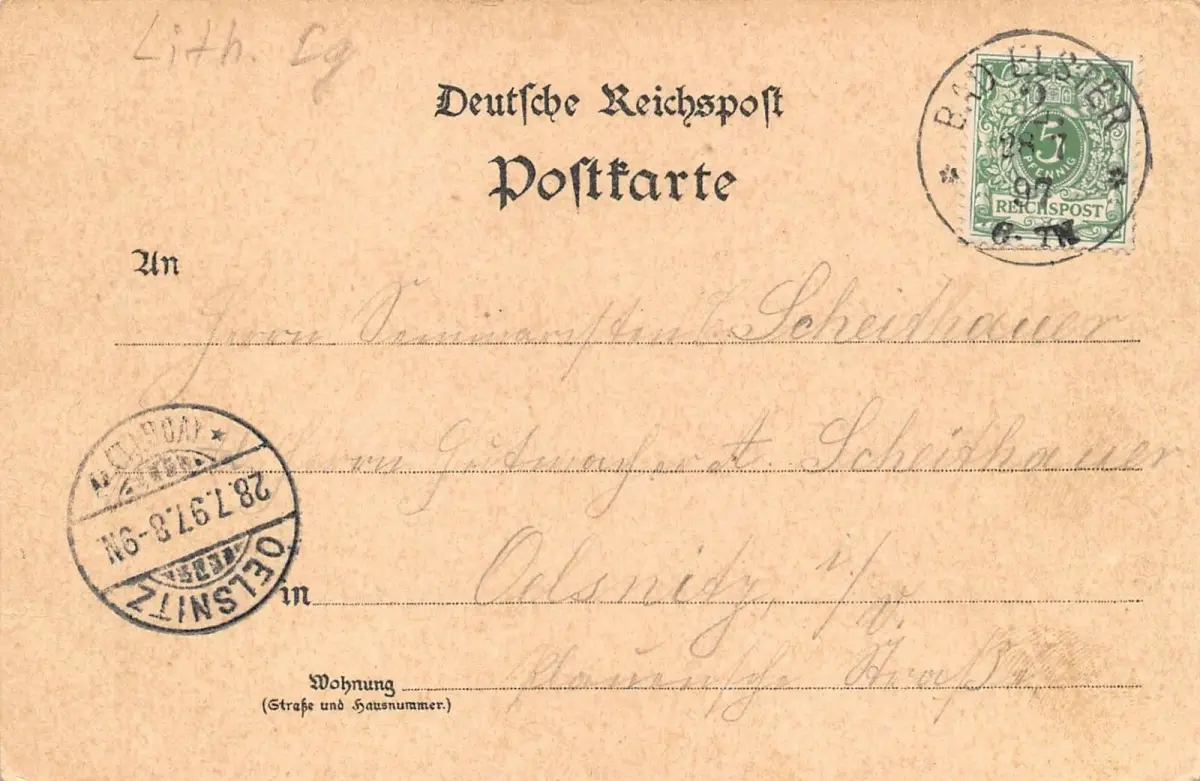 Lith.
Deutsche Reichspost
Postkarte
BAD ELSTER
2
28 7
97
6-7N
5
PFENNIG
REICHSPOST
An
Herrn Scheithauer
Herrn A. Scheithauer
OELSNITZ
(VOGTL.)
28.7.97.8-9N
in Oelsnitz i/V.
Wohnung Plauensche Straße
(Straße und Hausnummer.)